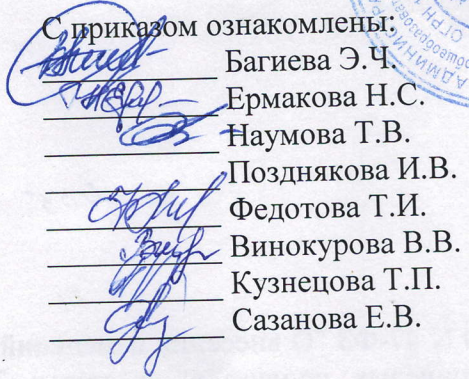 С приказом ознакомлены:
Багиева Э.Ч.
Ермакова Н.С.
Наумова Т.В.
Позднякова И.В.
Федотова Т.И.
Винокурова В.В.
Кузнецова Т.П.
Сазанова Е.В.